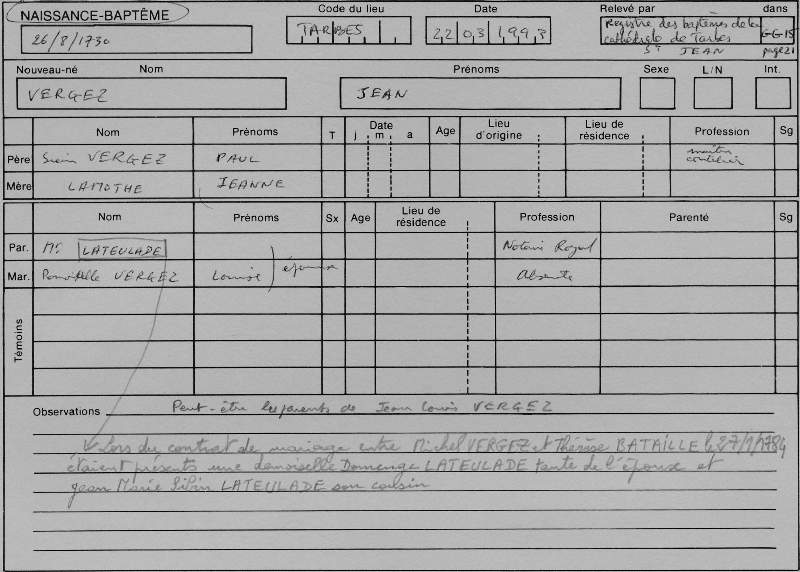 NAISSANCE-BAPTÊME Code du lieu Date Relevé par dans
26/8/1730 TARBES 22 03 1993 Registre des baptêmes de la cathédrale de Tarbes St JEAN GG15 page 21
Nouveau-né Nom Prénoms Sexe L/N Int.
VERGEZ JEAN
Nom Prénoms T j Date m a Age Lieu d'origine Lieu de résidence Profession Sg
Père VERGEZ PAUL maître
Mère LAMOTHE JEANNE
Nom Prénoms Sx Age Lieu de résidence Profession Parenté Sg
Par. Mr LATEULADE Notaire Royal
Mar. VERGEZ Louise épouse Absente
Témoins
Observations Peut-être les parents de Jean Louis VERGEZ
Lors du contrat de mariage entre Michel VERGEZ et Thérèse BATAILLE le 27/1/1784
étaient présents une demoiselle Domenge LATEULADE tante de l'époux et
Jean Marie LATEULADE son cousin